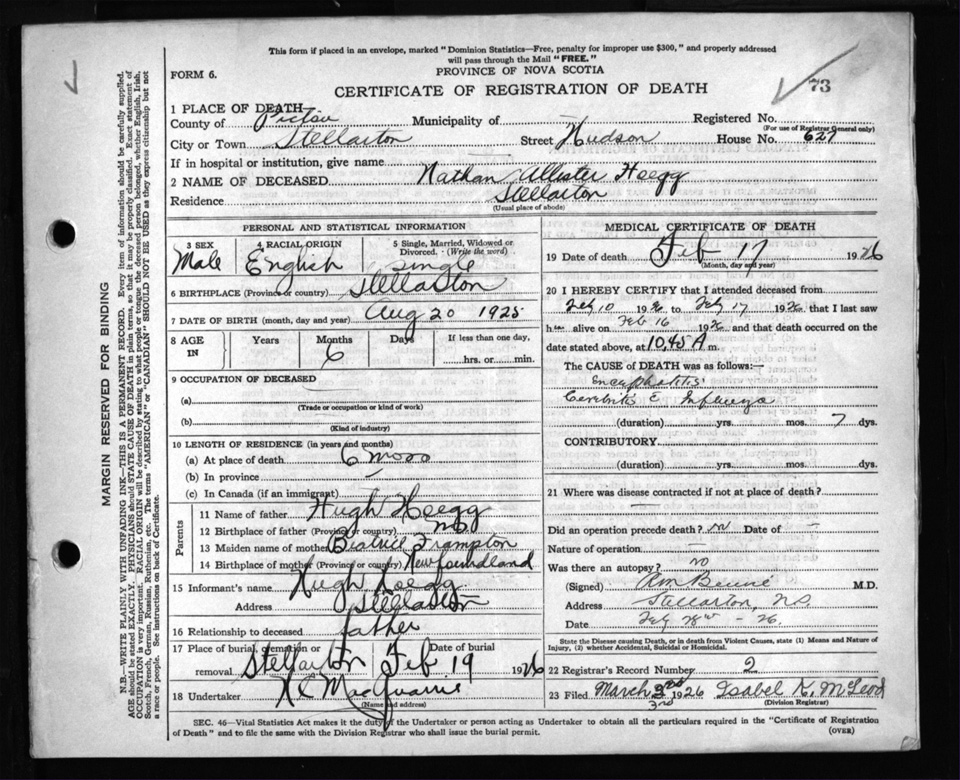 This form if placed in an envelope, marked "Dominion Statistics—Free, penalty for improper use $300," and properly addressed
will pass through the Mail "FREE."
FORM 6.
PROVINCE OF NOVA SCOTIA
73
CERTIFICATE OF REGISTRATION OF DEATH
1 PLACE OF DEATH
County of Pictou Municipality of Registered No.
(For use of Registrar General only)
City or Town Stellarton Street Hudson House No. 627
If in hospital or institution, give name
2 NAME OF DECEASED Nathan Allister Hoegg
Residence Stellarton
(Usual place of abode)
PERSONAL AND STATISTICAL INFORMATION
3 SEX 4 RACIAL ORIGIN 5 Single, Married, Widowed or
Divorced. (Write the word)
Male English Single
6 BIRTHPLACE (Province or country) Stellarton
7 DATE OF BIRTH (month, day and year) Aug 20 1925
8 AGE IN Years Months Days If less than one day,
6 hrs. or min.
9 OCCUPATION OF DECEASED
(a)
(Trade or occupation or kind of work)
(b)
(Kind of industry)
10 LENGTH OF RESIDENCE (in years and months)
(a) At place of death 6 mos
(b) In province
(c) In Canada (if an immigrant)
Parents
11 Name of father Hugh Hoegg
12 Birthplace of father (Province or country)
13 Maiden name of mother Frampton
14 Birthplace of mother (Province or country) Newfoundland
15 Informant's name Hugh Hoegg
Address Stellarton
16 Relationship to deceased father
17 Place of burial, cremation or removal Stellarton Date of burial Feb 19 1926
18 Undertaker MacQuarrie
(Name and address)
MEDICAL CERTIFICATE OF DEATH
19 Date of death Feb 17 1926
(Month, day and year)
20 I HEREBY CERTIFY that I attended deceased from
Feb 10 1926 to Feb 17 1926, that I last saw
him alive on Feb 16 1926 and that death occurred on the
date stated above, at 10.45 A m.
The CAUSE of DEATH was as follows:—
Encephalitis
Cerebritis c Influenza
(duration) yrs. mos. 7 dys.
CONTRIBUTORY
(duration) yrs. mos. dys.
21 Where was disease contracted if not at place of death?
Did an operation precede death? no Date of —
Nature of operation —
Was there an autopsy? no
(Signed) M.D.
Address Stellarton, N.S.
Date Feb - 26.
State the Disease causing Death, or in death from Violent Causes, state (1) Means and Nature of
Injury, (2) whether Accidental, Suicidal or Homicidal.
22 Registrar's Record Number 2
23 Filed March 3rd 1926 Isabel K. McLeod
(Division Registrar)
SEC. 46—Vital Statistics Act makes it the duty of the Undertaker or person acting as Undertaker to obtain all the particulars required in the "Certificate of Registration
of Death" and to file the same with the Division Registrar who shall issue the burial permit.
(OVER)
MARGIN RESERVED FOR BINDING
N.B.—WRITE PLAINLY WITH UNFADING INK—THIS IS A PERMANENT RECORD. Every item of information should be carefully supplied.
AGE should be stated EXACTLY. PHYSICIANS should STATE CAUSE OF DEATH in plain terms, so that it may be properly classified. Exact statement of
OCCUPATION is very important. RACIAL ORIGIN will be described by stating to what people or tongue the deceased person belonged, whether English, Irish,
Scotch, French, German, Russian, Ruthenian, etc. The terms "AMERICAN" or "CANADIAN" SHOULD NOT BE USED as they express citizenship but not
a race or people. See instructions on back of Certificate.